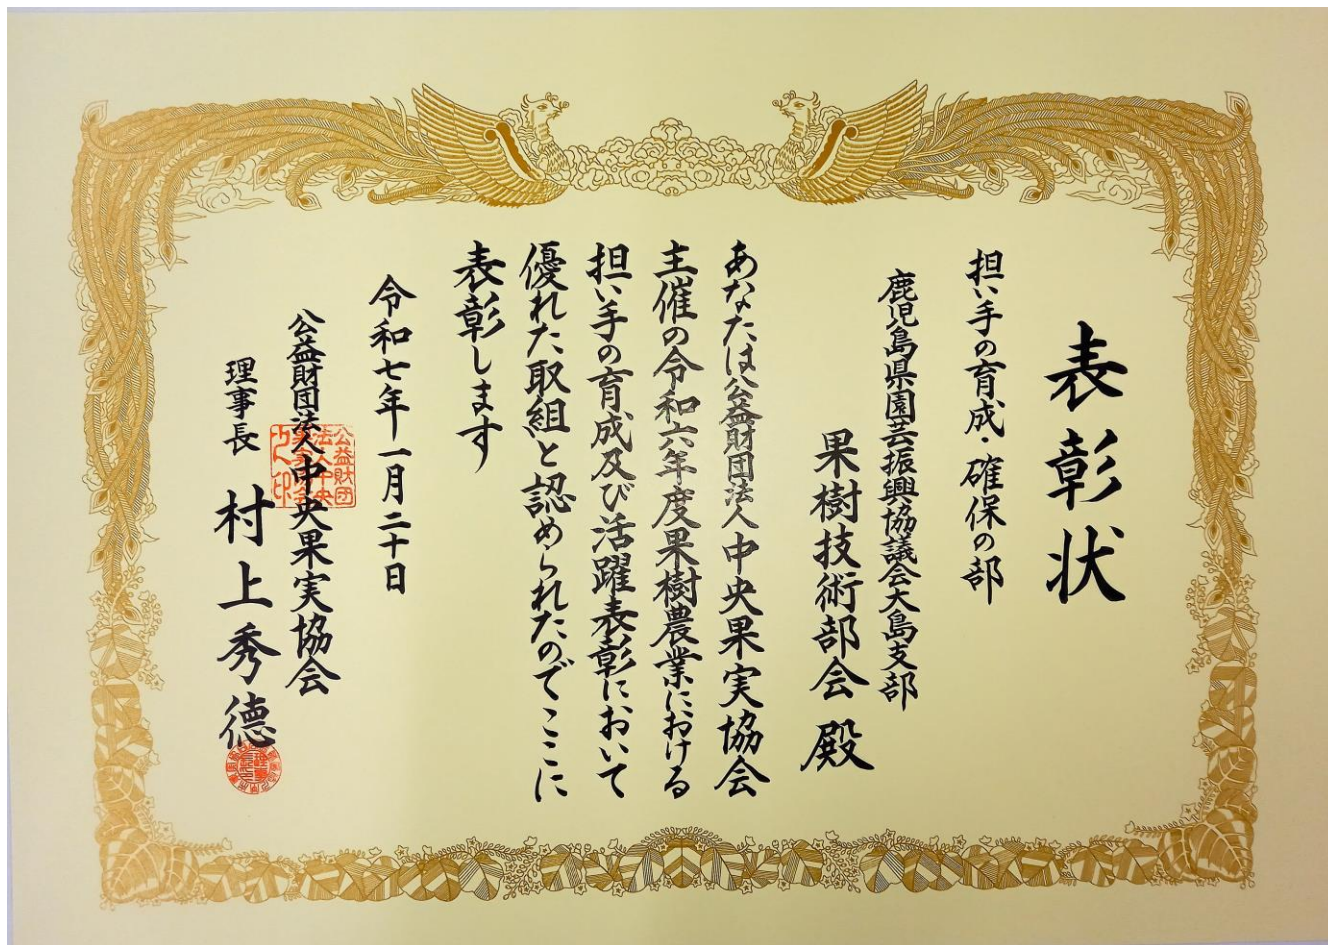 表彰状
担い手の育成・確保の部
鹿児島県園芸振興協議会大島支部
果樹技術部会 殿
あなたは公益財団法人中央果実協会
主催の令和六年度果樹農業における
担い手の育成及び活躍表彰において
優れた取組と認められたのでここに
表彰します
令和七年一月二十日
公益財団法人中央果実協会
理事長 村上秀德